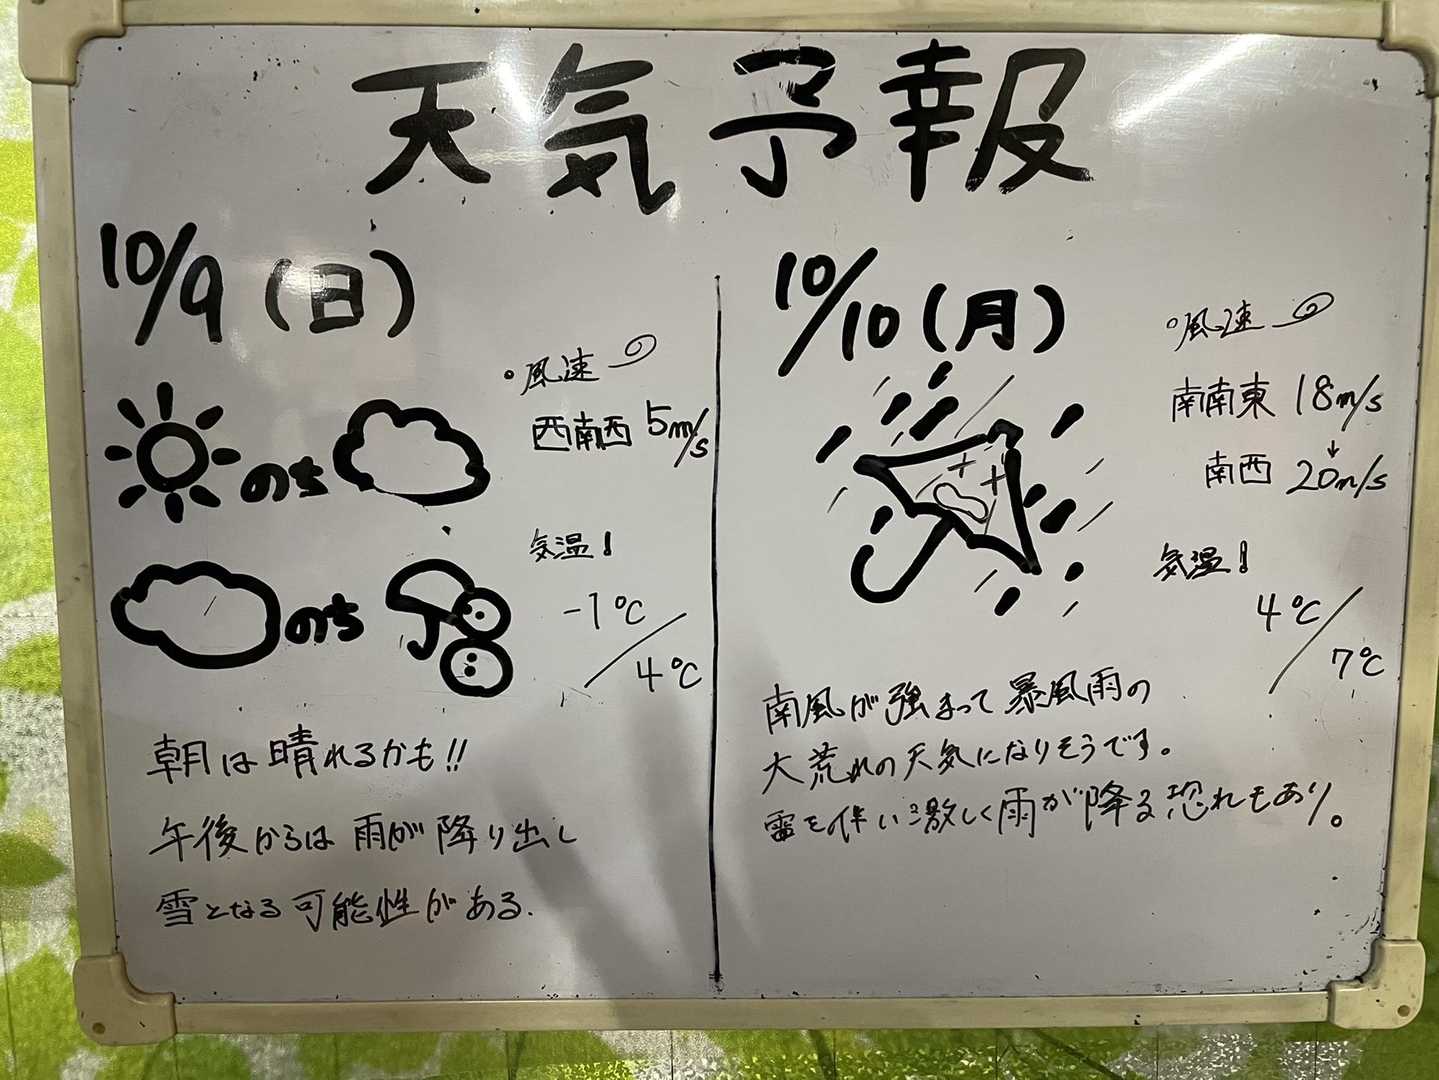 天気予報
10/9(日)
・風速
西南西 5m/s
のち
気温!
のち
-1℃/4℃
朝は晴れるかも!!
午後からは雨が降り出し
雪となる可能性がある.
10/10(月)
・風速
南南東 18m/s
↓
南西 20m/s
気温!
4℃/7℃
南風が強まって暴風雨の
大荒れの天気になりそうです。
雷を伴い激しく雨が降る恐れもあり。